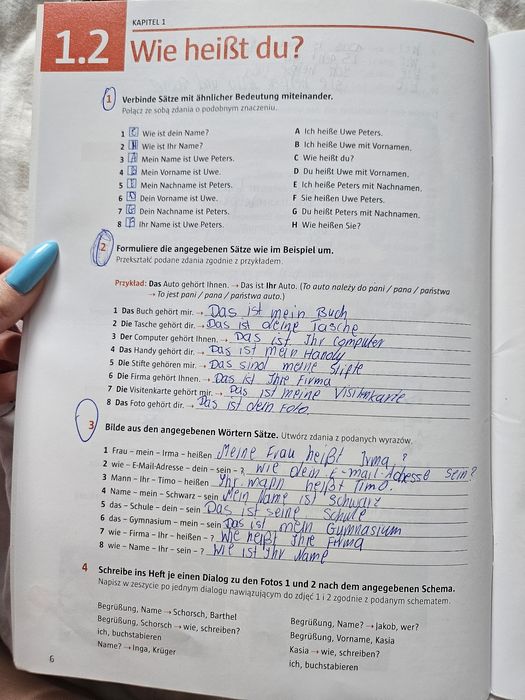 KAPITEL 1
1.2 Wie heißt du?
1 Verbinde Sätze mit ähnlicher Bedeutung miteinander.
Połącz ze sobą zdania o podobnym znaczeniu.
1 C Wie ist dein Name?
2 H Wie ist Ihr Name?
3 A Mein Name ist Uwe Peters.
4 B Mein Vorname ist Uwe.
5 E Mein Nachname ist Peters.
6 D Dein Vorname ist Uwe.
7 G Dein Nachname ist Peters.
8 F Ihr Name ist Uwe Peters.
A Ich heiße Uwe Peters.
B Ich heiße Uwe mit Vornamen.
C Wie heißt du?
D Du heißt Uwe mit Vornamen.
E Ich heiße Peters mit Nachnamen.
F Sie heißen Uwe Peters.
G Du heißt Peters mit Nachnamen.
H Wie heißen Sie?
2 Formuliere die angegebenen Sätze wie im Beispiel um.
Przekształć podane zdania zgodnie z przykładem.
Przykład: Das Auto gehört Ihnen. → Das ist Ihr Auto. (To auto należy do pani / pana / państwa
→ To jest pani / pana / państwa auto.)
1 Das Buch gehört mir. → Das ist mein Buch
2 Die Tasche gehört dir. → Das ist deine Tasche
3 Der Computer gehört Ihnen. → Das ist Ihr Computer
4 Das Handy gehört mir. → Das ist mein Handy
5 Die Stifte gehören mir. → Das sind meine Stifte
6 Die Firma gehört Ihnen. → Das ist Ihre Firma
7 Die Visitenkarte gehört mir. → Das ist meine Visitenkarte
8 Das Foto gehört dir. → Das ist dein Foto
3 Bilde aus den angegebenen Wörtern Sätze. Utwórz zdania z podanych wyrazów.
1 Frau – mein – Irma – heißen Meine Frau heißt Irma ?
2 wie – E-Mail-Adresse – dein – sein – ? Wie dein E-mail-Adresse sein?
3 Mann – Ihr – Timo – heißen Ihr mann heißt Timo.
4 Name – mein – Schwarz – sein Mein Name ist Schwarz
5 das – Schule – dein – sein Das ist seine Schule
6 das – Gymnasium – mein – sein Das ist mein Gymnasium
7 wie – Firma – Ihr – heißen – ? Wie heißt Ihre Firma
8 wie – Name – Ihr – sein – ? Wie ist Ihr Name
4 Schreibe ins Heft je einen Dialog zu den Fotos 1 und 2 nach dem angegebenen Schema.
Napisz w zeszycie po jednym dialogu nawiązującym do zdjęć 1 i 2 zgodnie z podanym schematem.
Begrüßung, Name → Schorsch, Barthel
Begrüßung, Schorsch → wie, schreiben?
ich, buchstabieren
Name? → Inga, Krüger
Begrüßung, Name? → Jakob, wer?
Begrüßung, Vorname, Kasia
Kasia → wie, schreiben?
ich, buchstabieren
6